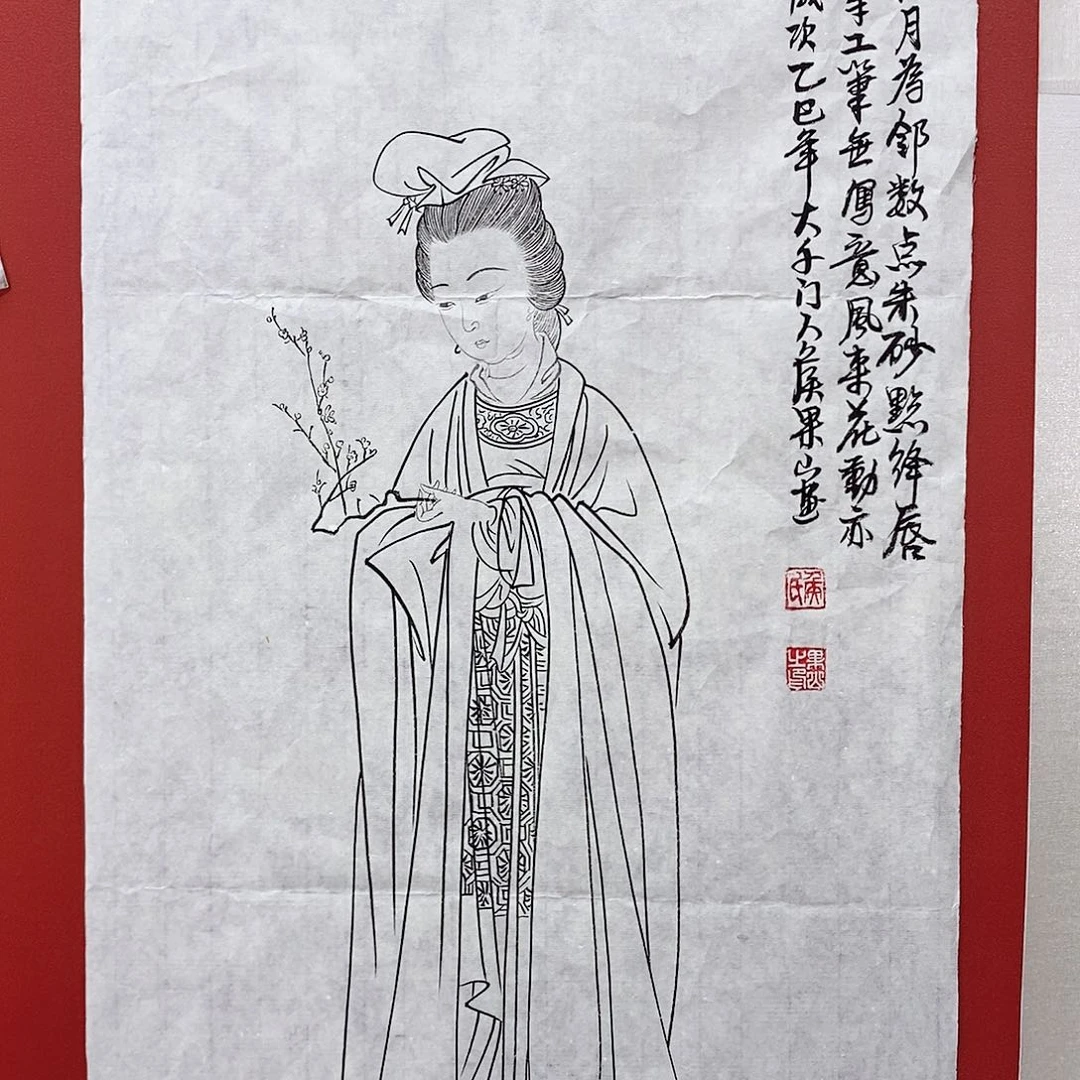 月為邻数点朱砂點絳唇
工筆無寫意風来花動亦
歲次乙巳年大千门人侯果山畫
侯氏
果山之印